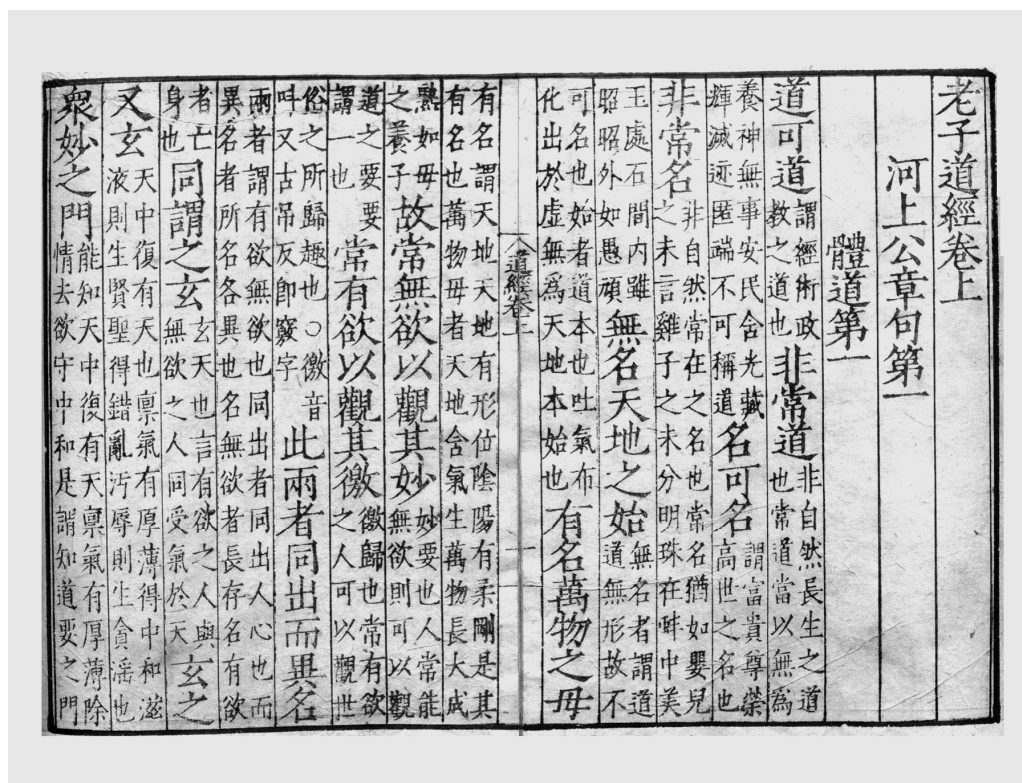 老子道經卷上
河上公章句第一
體道第一
道可道謂經術政教之道也非常道非自然長生之道也常道當以無爲
養神無事安民含光藏輝滅迹匿端不可稱道名可名謂富貴尊榮高世之名也
非常名非自然常在之名也常名猶如嬰兒之未言雞子之未分明珠在蚌中美
玉處石間内雖昭昭外如愚頑無名天地之始無名者謂道道無形故不
可名也始者道本也吐氣布化出於虛無爲天地本始也有名萬物之母
道經卷上 一
有名謂天地天地有形位陰陽有柔剛是其有名也萬物母者天地含氣生萬物長大成
熟如母之養子故常無欲以觀其妙妙要也人常能無欲則可以觀
道之要要謂一也常有欲以觀其徼徼歸也常有欲之人可以觀世
俗之所歸趣也○徼音呌又古吊反即竅字此兩者同出而異名
兩者謂有欲無欲也同出者同出人心也而異名者所名各異也名無欲者長存名有欲
者亡身也同謂之玄玄天也言有欲之人與無欲之人同受氣於天玄之
又玄天中復有天也稟氣有厚薄得中和滋液則生賢聖得錯亂污辱則生貪淫也
衆妙之門能知天中復有天稟氣有厚薄除情去欲守中和是謂知道要之門